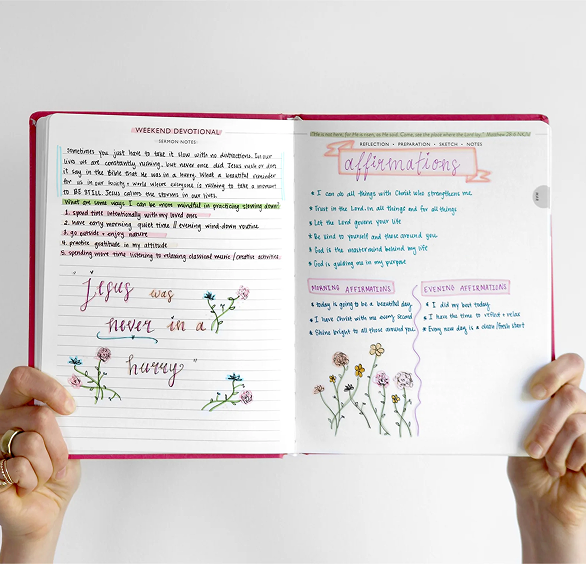 WEEKEND DEVOTIONAL
SERMON NOTES:
Sometimes you just have to take it slow with no distractions. In our
lives we are constantly rushing, but never once did Jesus rush or does
it say in the Bible that He was in a hurry. What a beautiful reminder
for us in our beauty + world where everyone is rushing to take a moment
to BE STILL. Jesus calms the storms in our lives.
What are some ways I can be more mindful in practicing slowing down?
1. spend time intentionally with my loved ones
2. have early morning quiet time // evening wind-down routine
3. go outside + enjoy nature
4. practice gratitude in my attitude
5. spending more time listening to relaxing classical music / creative activities
"Jesus was
never in a
hurry"
"He is not here; for He is risen, as He said. Come, see the place where the Lord lay." Matthew 28:6 NKJV
REFLECTION • PREPARATION • SKETCH • NOTES
affirmations
* I can do all things with Christ who strengthens me
* Trust in the Lord in all things and for all things
* Let the Lord govern your life
* Be kind to yourself and those around you
* God is the mastermind behind my life
* God is guiding me in my purpose
MORNING AFFIRMATIONS
* today is going to be a beautiful day
* I have Christ with me every second
* Shine bright to all those around you
EVENING AFFIRMATIONS
* I did my best today
* I have the time to reflect + relax
* Every new day is a clean/fresh start